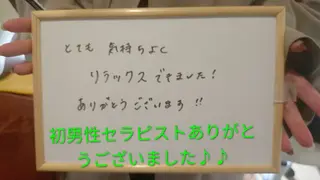 とても 気持ちよく
リラックスできました!
ありがとうございます!!
初男性セラピストありがと
うございました♪♪